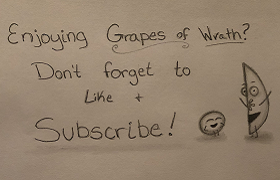 Enjoying Grapes of Wrath?
Don't forget to
Like +
Subscribe!